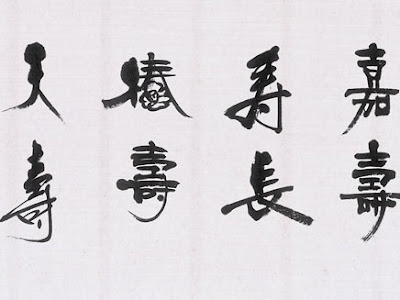 嘉壽
寿長
椿壽
天壽